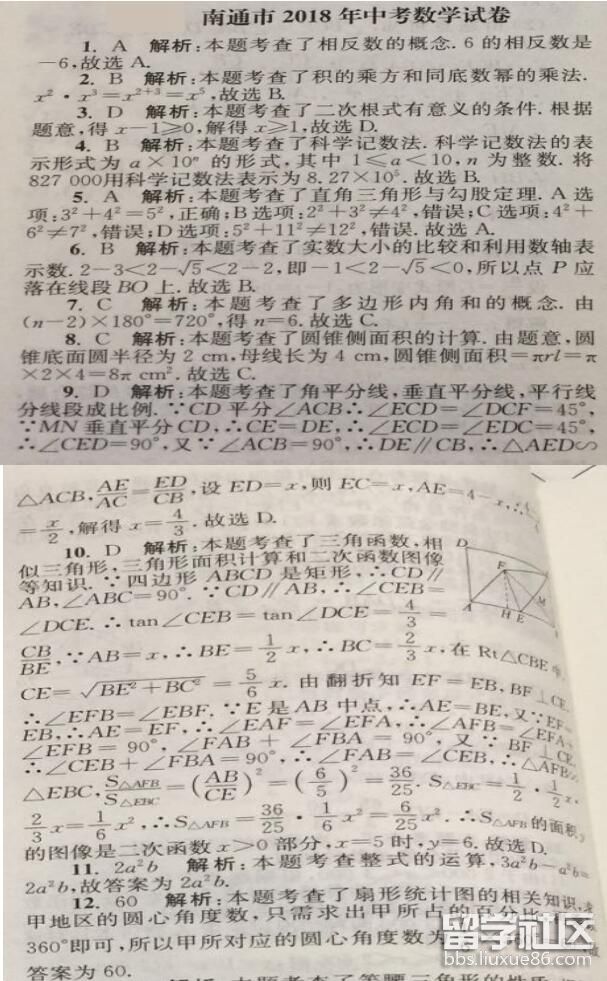 南通市 2018 年中考数学试卷
1. A 解析:本题考查了相反数的概念. 6 的相反数是
-6,故选 A.
2. B 解析:本题考查了积的乘方和同底数幂的乘法.
x²·x³=x²⁺³=x⁵,故选 B.
3. D 解析:本题考查了二次根式有意义的条件. 根据
题意,得 x-1≥0,解得 x≥1,故选 D.
4. B 解析:本题考查了科学记数法. 科学记数法的表
示形式为 a×10ⁿ 的形式,其中 1≤a<10,n 为整数. 将
827 000用科学记数法表示为 8.27×10⁵. 故选 B.
5. A 解析:本题考查了直角三角形与勾股定理. A 选
项:3²+4²=5²,正确;B选项:2²+3²≠4²,错误;C选项:4²+
6²≠7²,错误;D选项:5²+11²≠12²,错误. 故选 A.
6. B 解析:本题考查了实数大小的比较和利用数轴表
示数. 2-3<2-√5<2-2,即-1<2-√5<0,所以点 P 应
落在线段BO 上. 故选 B.
7. C 解析:本题考查了多边形内角和的概念. 由
(n-2)×180°=720°,得 n=6. 故选 C.
8. C 解析:本题考查了圆锥侧面积的计算. 由题意,圆
锥底面圆半径为 2 cm,母线长为 4 cm,圆锥侧面积=πrl=π
×2×4=8π cm². 故选 C.
9. D 解析:本题考查了角平分线,垂直平分线,平行线
分线段成比例. ∵CD 平分∠ACB∴∠ECD=∠DCF=45°,
∵MN 垂直平分 CD,∴CE=DE,∴∠ECD=∠EDC=45°,
∴∠CED=90°,又∵∠ACB=90°,∴DE∥CB,∴△AED∽
△ACB,AE/AC=ED/CB,设 ED=x,则 EC=x,AE=4-x,∴
=x/2,解得 x=4/3. 故选 D.
10. D 解析:本题考查了三角函数,相
似三角形,三角形面积计算和二次函数图像
等知识. ∵四边形 ABCD 是矩形,∴CD∥
AB,∠ABC=90°. ∵CD∥AB,∴∠CEB=
∠DCE. ∴tan∠CEB=tan∠DCE=4/3=
CB/BE,∵AB=x,∴BE=1/2x,∴BC=2/3x,在 Rt△CBE
CE=√BE²+BC²=5/6x. 由翻折知 EF=EB,BF⊥CE.
∴∠EFB=∠EBF. ∵E 是 AB 中点,∴AE=BE,又∵EF=
EB,∴AE=EF,∴∠EAF=∠EFA,∴∠AFB=∠EFA+
∠EFB=90°,∠FAB+∠FBA=90°,又∵BF⊥CE,
∴∠CEB+∠FBA=90°,∴∠FAB=∠CEB,∴△AFB∽
△EBC,S△AFB/S△EBC=(AB/CE)²=(6/5)²=36/25. S△EBC=1/2·1/2x·
2/3x=1/6x²,∴S△AFB=36/25·1/6x²=6/25x². ∴S△AFB的面积y
的图像是二次函数 x>0 部分,x=5 时,y=6. 故选 D.
D
F
M
A
H
E
11. 2a²b 解析:本题考查整式的运算,3a²b-a²b=
2a²b,故答案为 2a²b.
12. 60 解析:本题考查了扇形统计图的相关知识,
甲地区的圆心角度数,只需求出甲所占的百分比
360°即可,所以甲所对应的圆心角度数为
答案为 60.
留学社区
bbs.liuxue86.com